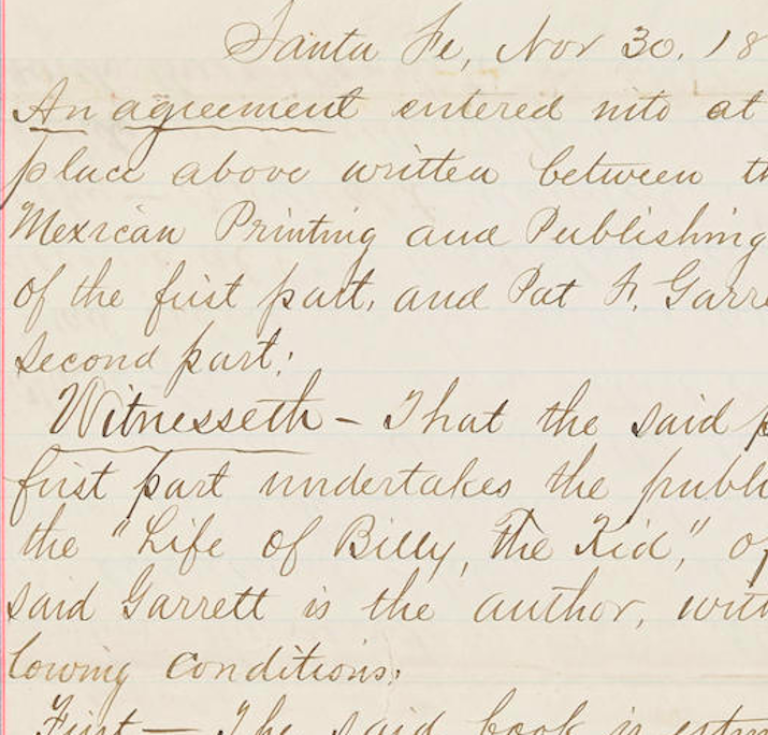 Santa Fe, Nov 30, 18
An agreement entered into at
place above written between th
Mexican Printing and Publishing
of the first part, and Pat F. Garre
second part:
Witnesseth – That the said p
first part undertakes the publi
the "Life of Billy, the Kid," of
said Garrett is the author, with
lowing conditions:
First — The said book is estm